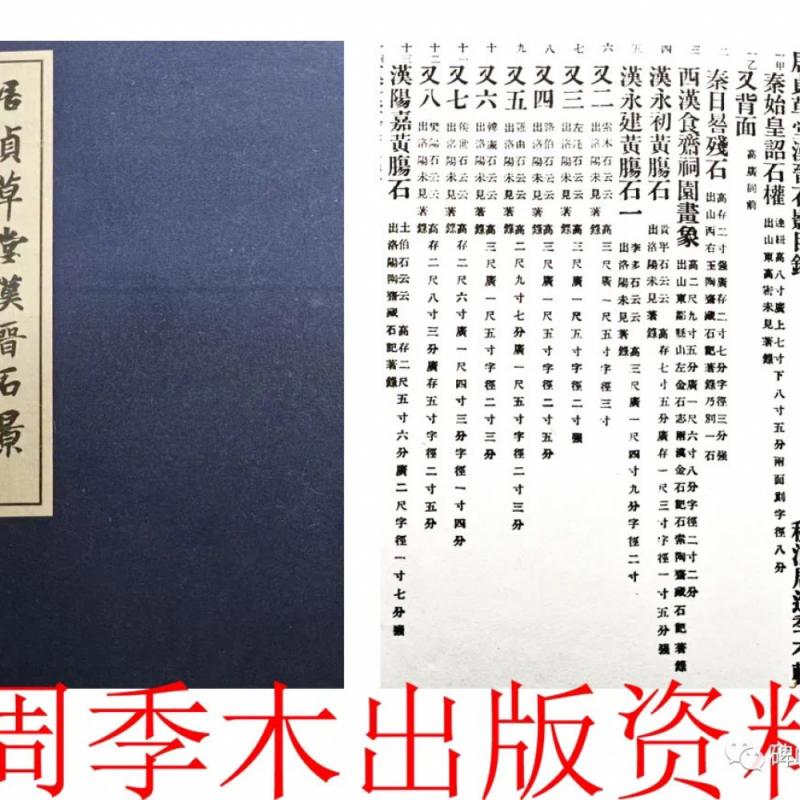 居貞草堂漢晉石景
居貞草堂漢晉石影目錄
一甲 秦始皇詔石權 連紐高八寸廣上七寸下八寸五分兩面刻字徑八分 出山東高密未見著錄
一乙 又背面 高廣同前
二 秦日晷殘石 高存二寸强廣存二寸七分字徑三分强 出山西右玉陶齋藏石記著錄乃別一石
三 西漢食齋祠園畫象 高二尺九寸五分廣一尺六寸八分字徑二寸二分 出山東鄒縣山左金石志兩漢金石記石索陶齋藏石記著錄
四 漢永初黃腸石 貴平石云云 高存七寸五分廣存一尺三寸字徑一寸五分强 出洛陽未見著錄
五 漢永建黃腸石一 李多石云云 高三尺廣一尺四寸九分字徑二寸 出洛陽未見著錄
六 又二 索木石云云 高三尺廣一尺五寸字徑三寸 出洛陽未見著錄
七 又三 左 石云云 高三尺廣一尺五寸字徑二寸强 出洛陽未見著錄
八 又四 路伯石云云 高三尺廣一尺五寸字徑二寸五分 出洛陽未見著錄
九 又五 由石云云 高二尺九寸七分廣一尺五寸字徑二寸三分 出洛陽未見著錄
十 又六 石云云 高三尺廣一尺五寸字徑二寸三分 出洛陽未見著錄
十一 又七 侯世石云云 高存二尺六寸廣一尺四寸三分字徑一寸四分 出洛陽未見著錄
十二 又八 樊陽石云云 高存二尺八寸三分廣存五寸字徑二寸五分 出洛陽未見著錄
十三 漢陽嘉黃腸石 土伯石云云 高存二尺五寸六分廣二尺字徑一寸七分强 出洛陽陶齋藏石記著錄
周季木出版资料
碑